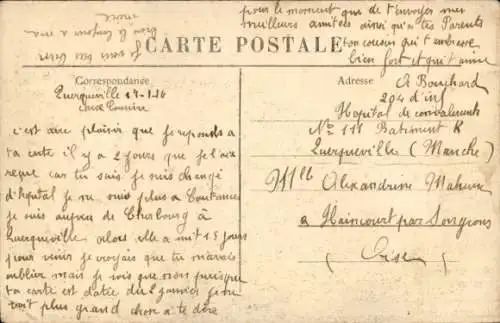 CARTE POSTALE
Correspondance
Adresse
Querqueville
c'est avec plaisir que je reponds a
ta carte il y a 2 jours que je l'ai
reçue car tu sais je suis changé
d'hopital je ne suis plus a Coutances
je suis aupres de Cherbourg à
Querqueville alors elle a mit 15 jours
pour venir je croyais que tu m'avais
oublier mais je vois que non puisque
ta carte est datée du 2 janvier
plus grand chose a te dire
pour le moment que de t'envoyer mes
meilleurs amitiés ainsi qu'a tes Parents
ton cousin qui t'embrasse
bien fort et qui t'aime
A Bouchard
204 d'inf
Hopital de convalescents
No 111 Batiment K
Querqueville (Manche)
Mlle Alexandrine
a Haincourt par Songeons
(Oise)